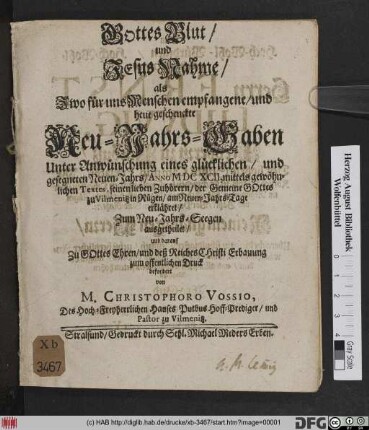 Gottes Blut/
und
JEsus Nahme/
als
Zwo für uns Menschen empfangene/und
heut geschenckte
Neu-Jahrs-Gaben
Unter Anwünschung eines glücklichen/ und
gesegneten Neuen-Jahrs/ ANNO M DC XCII. mittels gewöhn-
lichen Textes, seinen lieben Zuhörern/ der Gemeine GOttes
zu Vilmenitz in Rügen/ am Neuen-Jahrs-Tage
erkläret/
Zum Neu-Jahrs-Seegen
ausgetheilt/
und darauf
Zu GOttes Ehren/ und deß Reiches Christi Erbauung
zum öffentlichen Druck
befordert
von
M. CHRISTOPHORO VOSSIO,
Des Hoch-Freyherrlichen Hauses Putbus Hoff-Prediger/ und
Pastor zu Vilmenitz.
Stralsund/ Gedruckt durch Sehl. Michael Meders Erben.
Xb
3467
Herzog August Bibliothek
Wolfenbüttel
(c) HAB http://diglib.hab.de/drucke/xb-3467/start.htm?image=00001
DFG